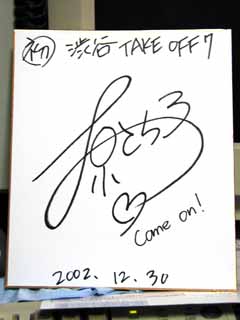 初 渋谷 TAKE OFF 7
Come on!
2002. 12. 30